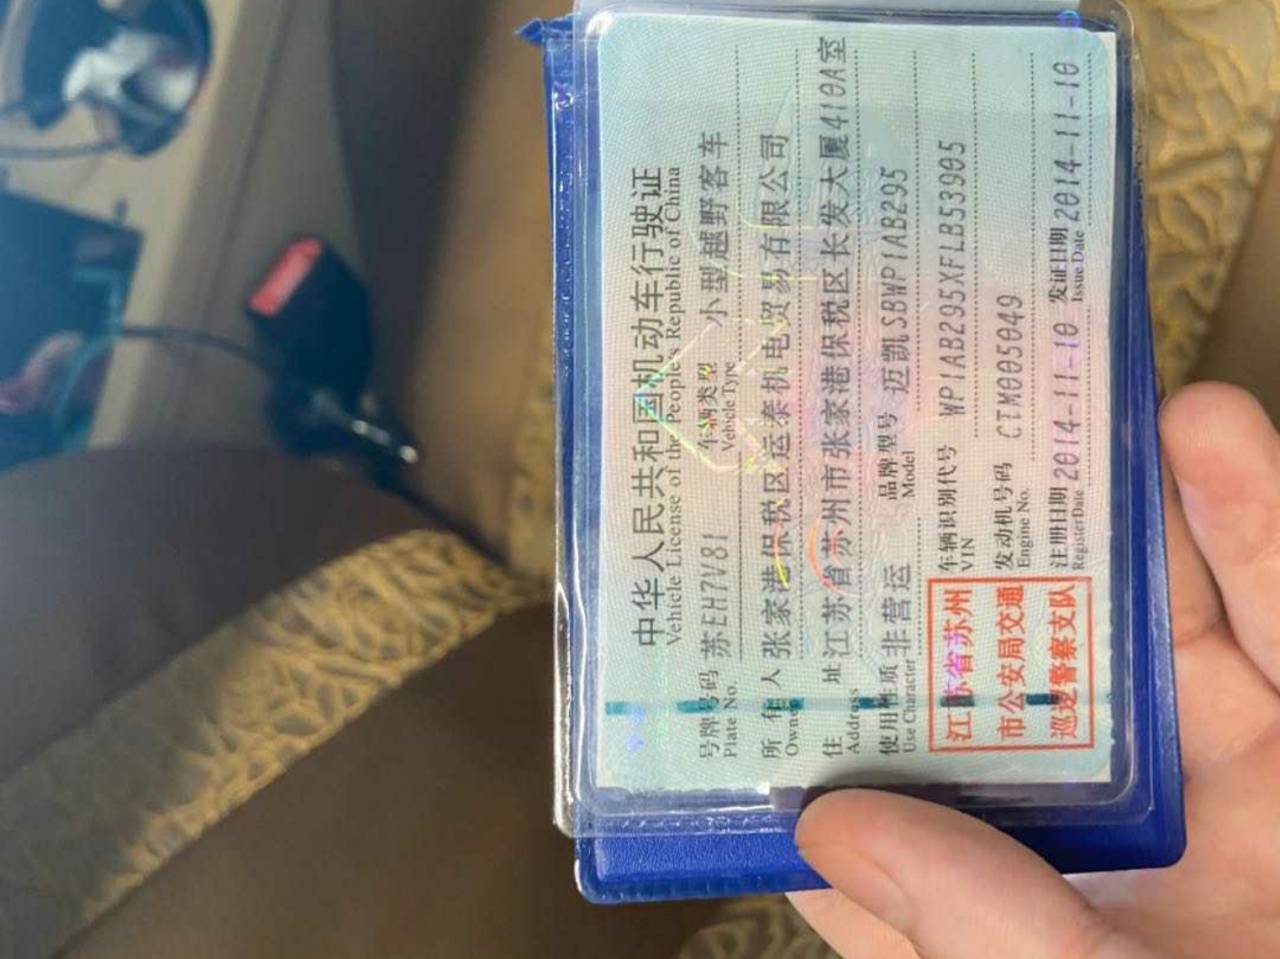 中华人民共和国机动车行驶证
Vehicle License of the People's Republic of China
号牌号码 苏EH7V81 车辆类型 小型越野客车
Plate No. Vehicle Type
所有人 张家港保税区运泰机电贸易有限公司
Owner
住址 江苏省苏州市张家港保税区长发大厦410A室
Address
使用性质 非营运 品牌型号 迈凯SBWP1AB295
Use Character Model
车辆识别代号 WP1AB295XFLB53905
VIN
发动机号码 CTM005049
Engine No.
注册日期 2014-11-10 发证日期 2014-11-10
Register Date Issue Date
江苏省苏州
市公安局交通
巡逻警察支队